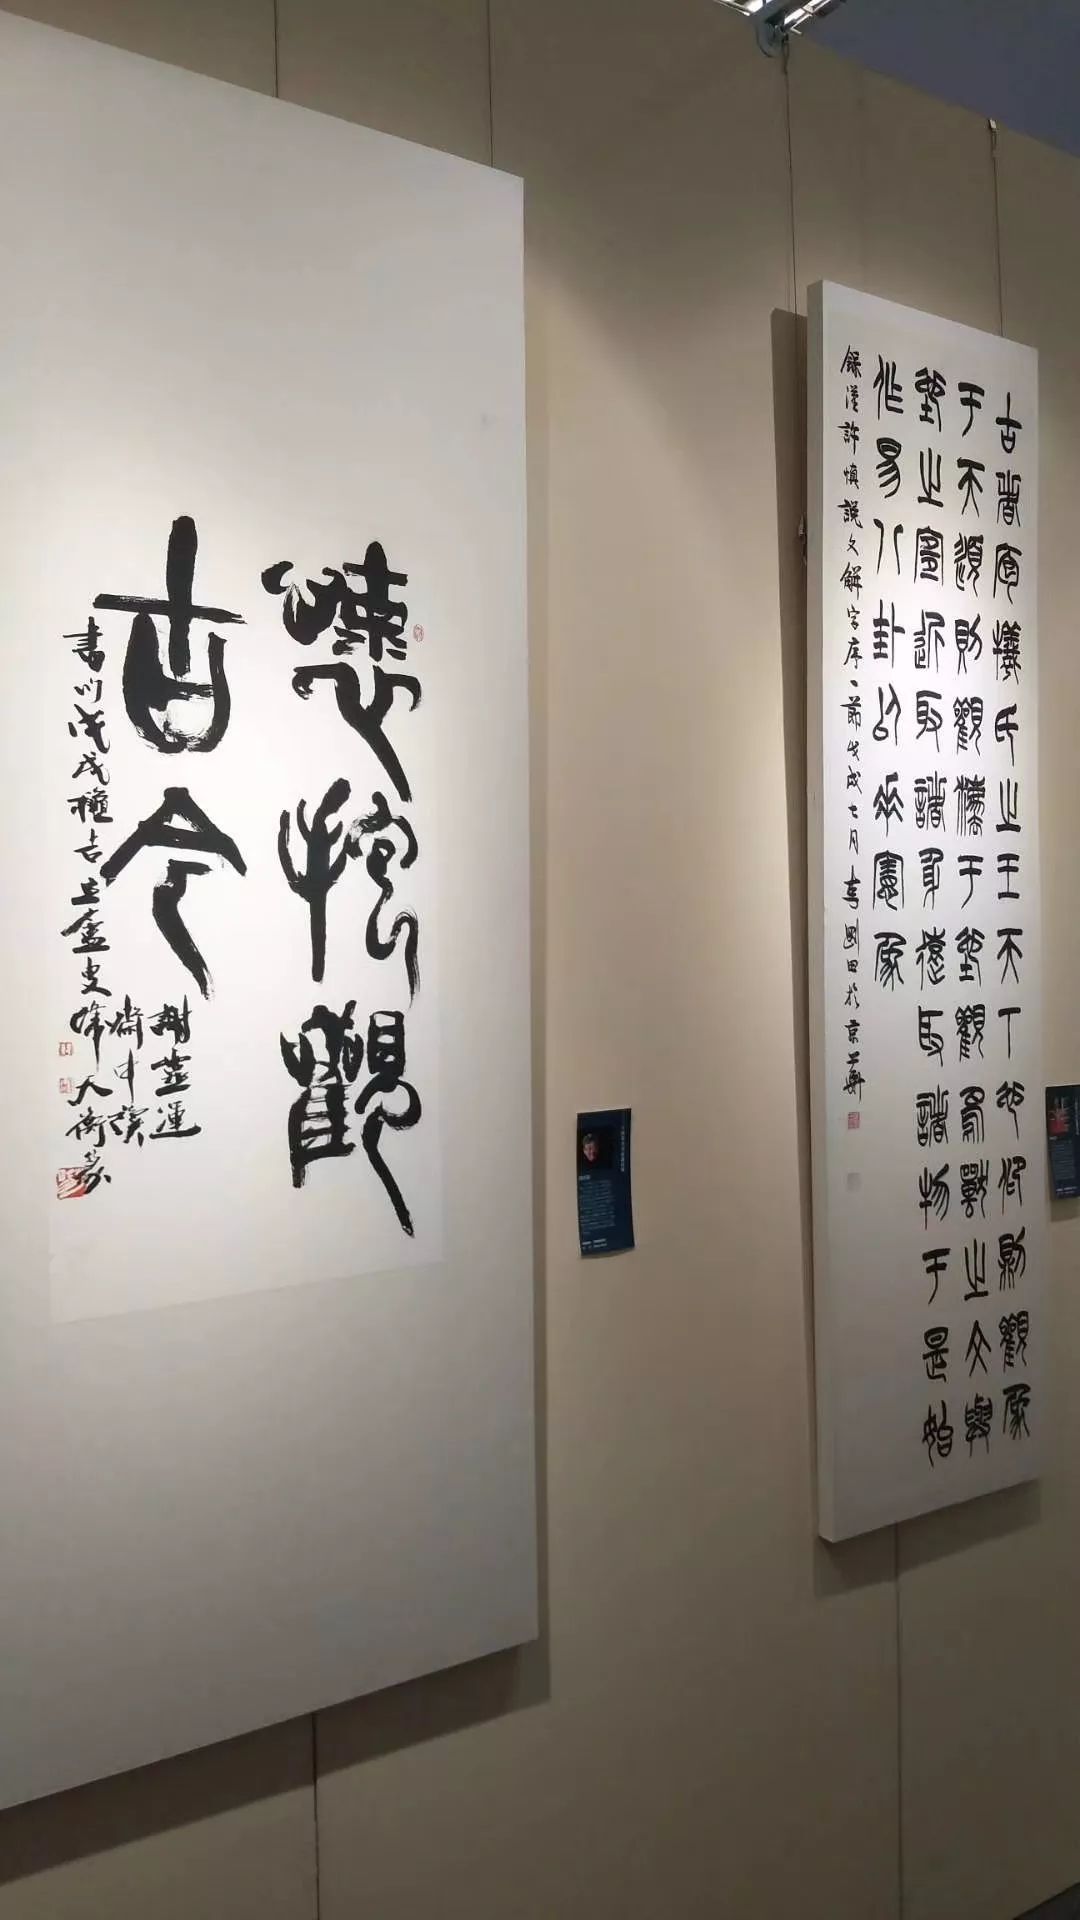 懷抱觀
古今
謝靈運
齋中讀
書 戊戌 吉 豆盧 韓天衡篆
古者庖犧氏之王天下也仰則觀象
于天頫則觀灋于地觀鳥獸之文與
地之宜近取諸身遠取諸物于是始
作易八卦以垂憲象
錄漢許慎說文解字序一節戊戌七月李剛田於京華